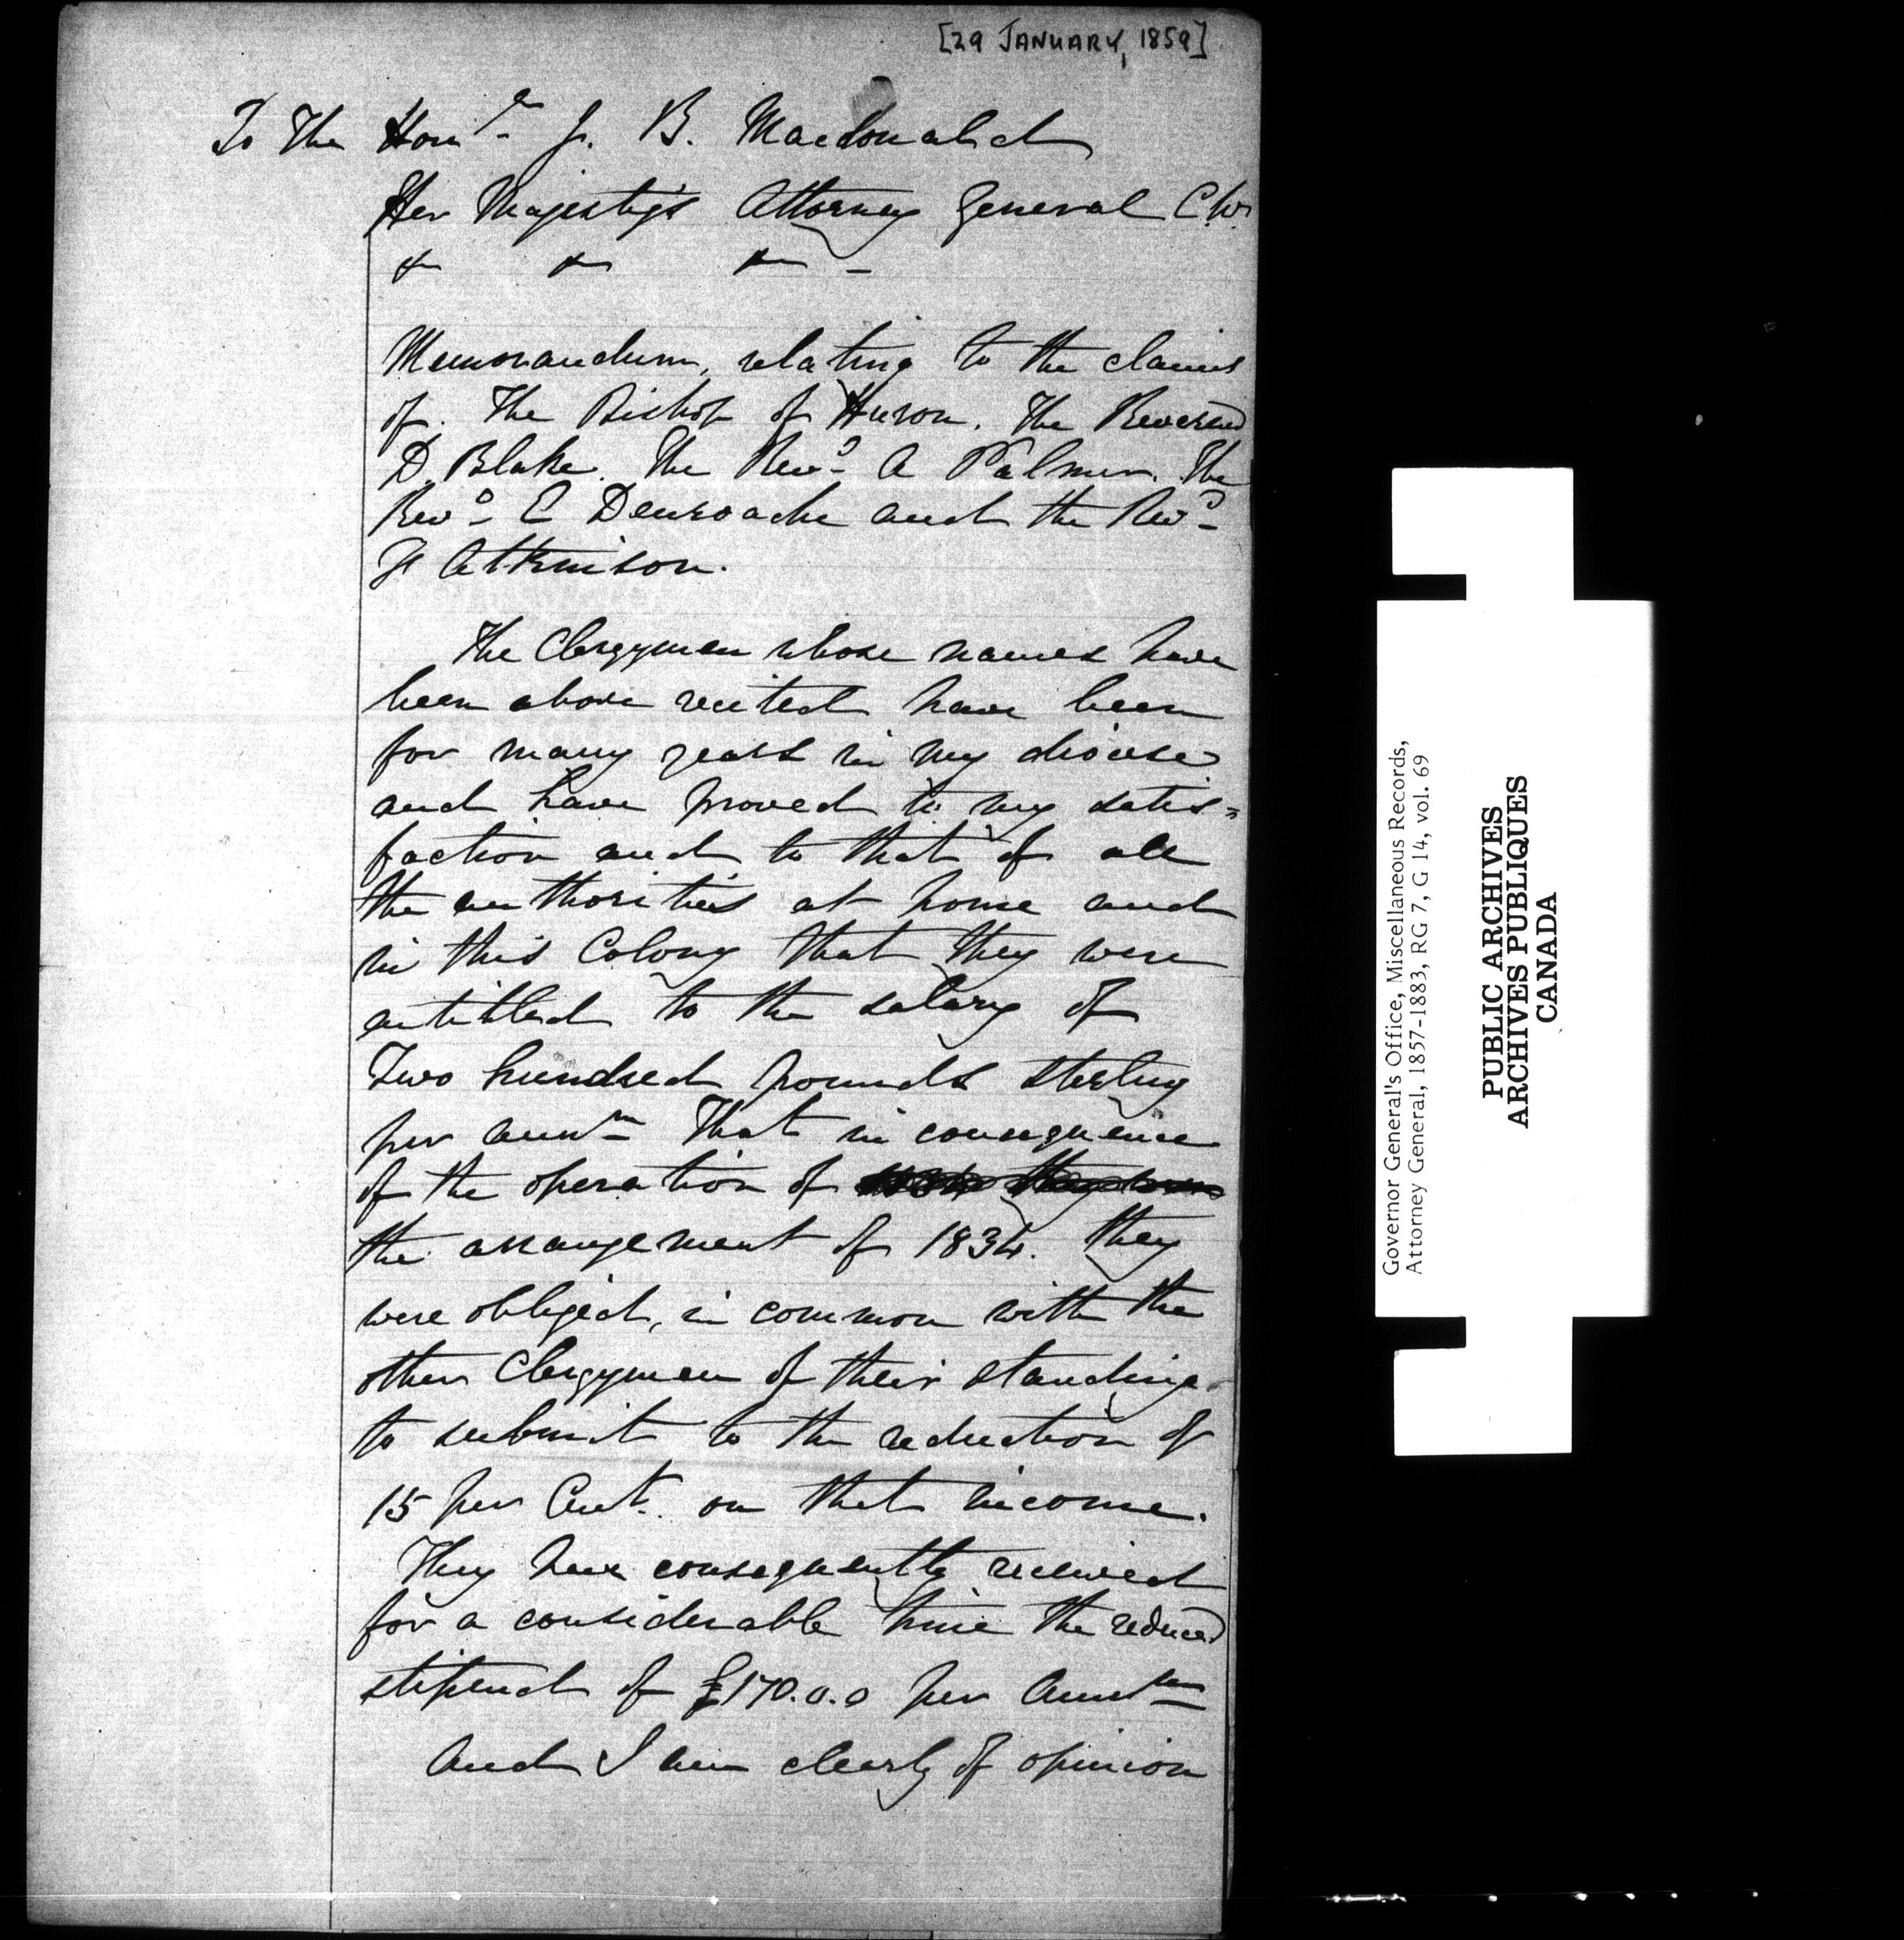 [29 JANUARY, 1859]
To The Honle J. B. Macdonald
Her Majesty's Attorney General C.W.
& & & -
Memorandum, relating to the claims
of. The Bishop of Huron. The Reverend
D. Blake. The Revd A Palmer. The
Revd E Denroache and the Revd
A Atkinson.
The Clergymen whose names have
been above recited have been
for many years in my diocese
and have proved to my satis=
faction and to that of all
the authorities at home and
in this Colony that they were
entitled to the salary of
Two hundred pounds sterling
per annm That in consequence
of the operation of
the arrangement of 1834. they
were obliged, in common with the
other Clergymen of their standing
to submit to the reduction of
15 per Cent. on that income.
They have consequently received
for a considerable time the reduced
stipend of £170.0.0 per Annum
And I am clearly of opinion
Governor General's Office, Miscellaneous Records,
Attorney General, 1857-1883, RG 7, G 14, vol. 69
PUBLIC ARCHIVES
ARCHIVES PUBLIQUES
CANADA